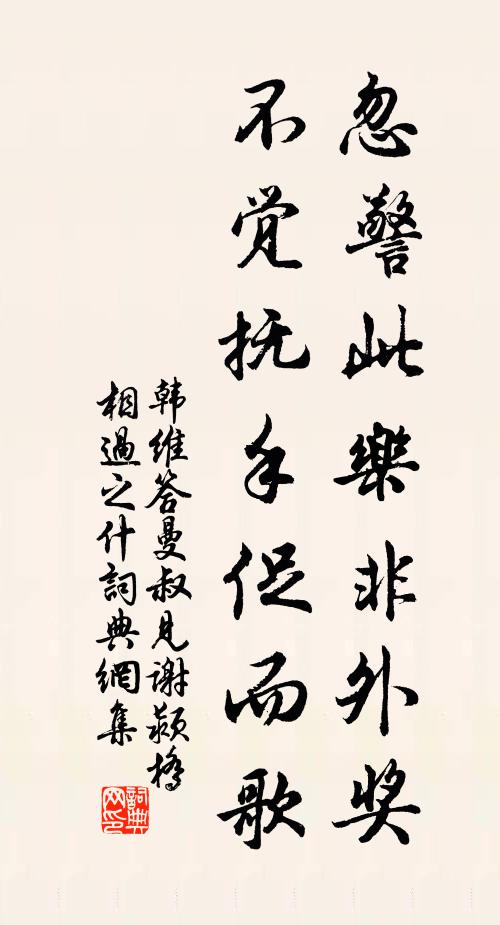 忽警此樂非外奖
不觉抚手促而歌
韩维答曼叔見谢蘋橋
相過之什詞典網集
詞典网印